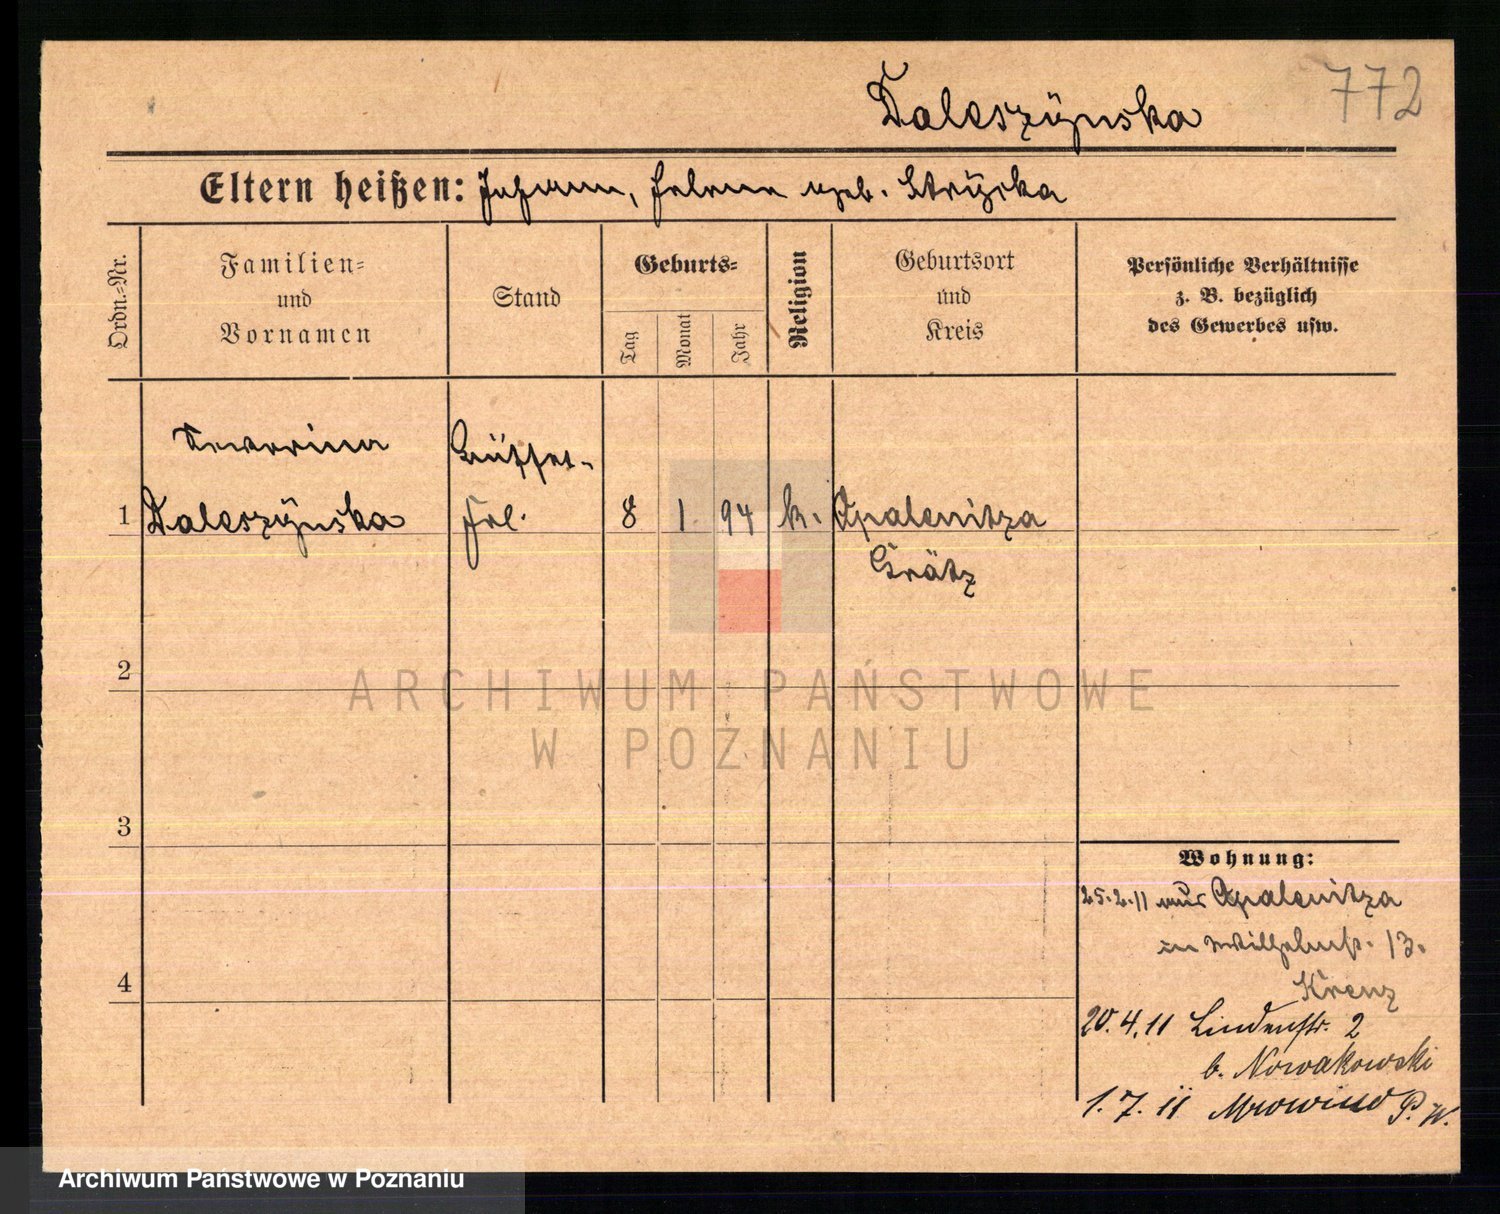 772
Daleszÿnska
Eltern heißen: Johann, Helena geb. Strÿcka
Ordn.-Nr.
Familien-
und
Vornamen
Stand
Geburts-
Tag
Monat
Jahr
Religion
Geburtsort
und
Kreis
Persönliche Verhältnisse
z. B. bezüglich
des Gewerbes usw.
Severina
Büffet-
1 Daleszÿnska Frl. 8 1. 94 k. Opalenitza
Grätz
2
ARCHIWUM PAŃSTWOWE
W POZNANIU
3
Wohnung:
25.2.11 aus Opalenitza
in Wilhelmstr. 13.
Krenz
4
20.4.11 Lindenstr. 2
b. Nowakowski
1.7.11 Mrowino P. W.
Archiwum Państwowe w Poznaniu